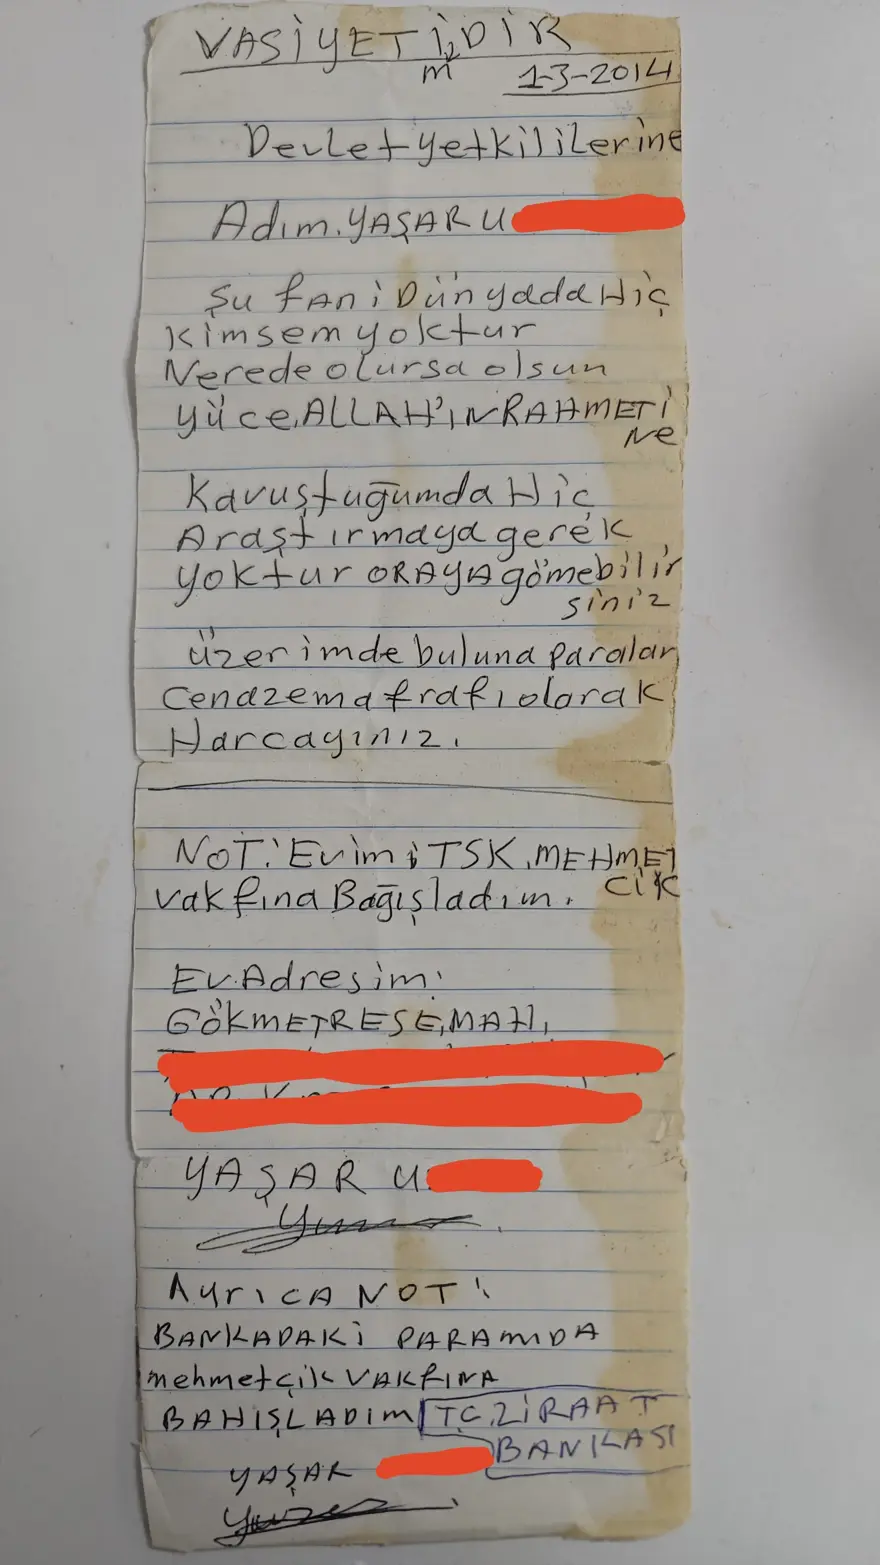 VASİYETİMDİR
1-3-2014
Devlet yetkililerine
Adım. YAŞAR U
Şu fAni Dünyada Hiç
Kimsem yoktur
Nerede olursa olsun
yüce, ALLAH'IN RAHMETİ
Ne
Kavuştuğumda Hiç
Araştırmaya gerek
yoktur ORAYA gömebilir
siniz
üzerimde buluna paralar
Cenazema frafı olarak
Harcayınız.
NOT: Evimi TSK. MEHMET
CİK
vakfına Bağışladım.
Ev Adresim:
GÖKMETRESE, MAH,
YAŞAR U
AyrıCA NOT:
BANKADAKİ PARAMIDA
mehmetçik VAKfINA
BAHIŞLADIM TC. ZİRAAT
BANKASI
YAŞAR